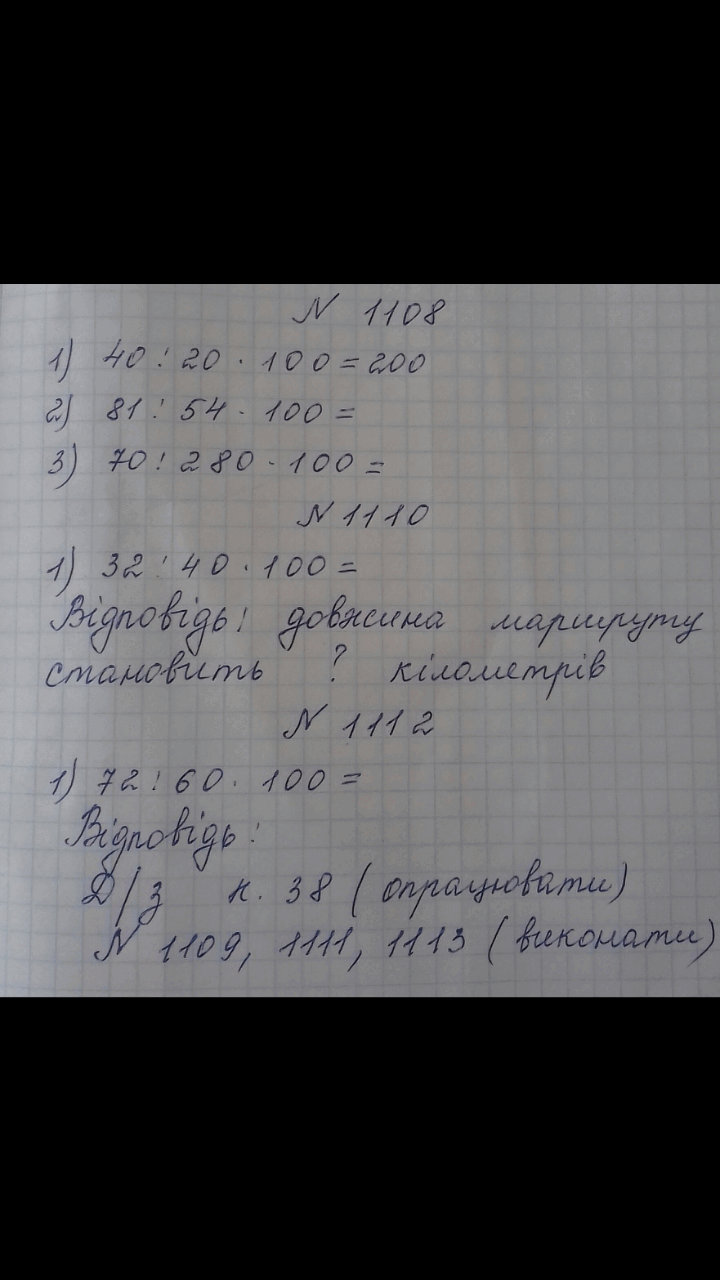 N 1108
1) 40 : 20 · 100 = 200
2) 81 : 54 · 100 =
3) 70 : 280 · 100 =
N 1110
1) 32 : 40 · 100 =
Відповідь: довжина маршруту
становить ? кілометрів
N 1112
1) 72 : 60 · 100 =
Відповідь:
Д/з п. 38 (опрацювати)
N 1109, 1111, 1113 (виконати)